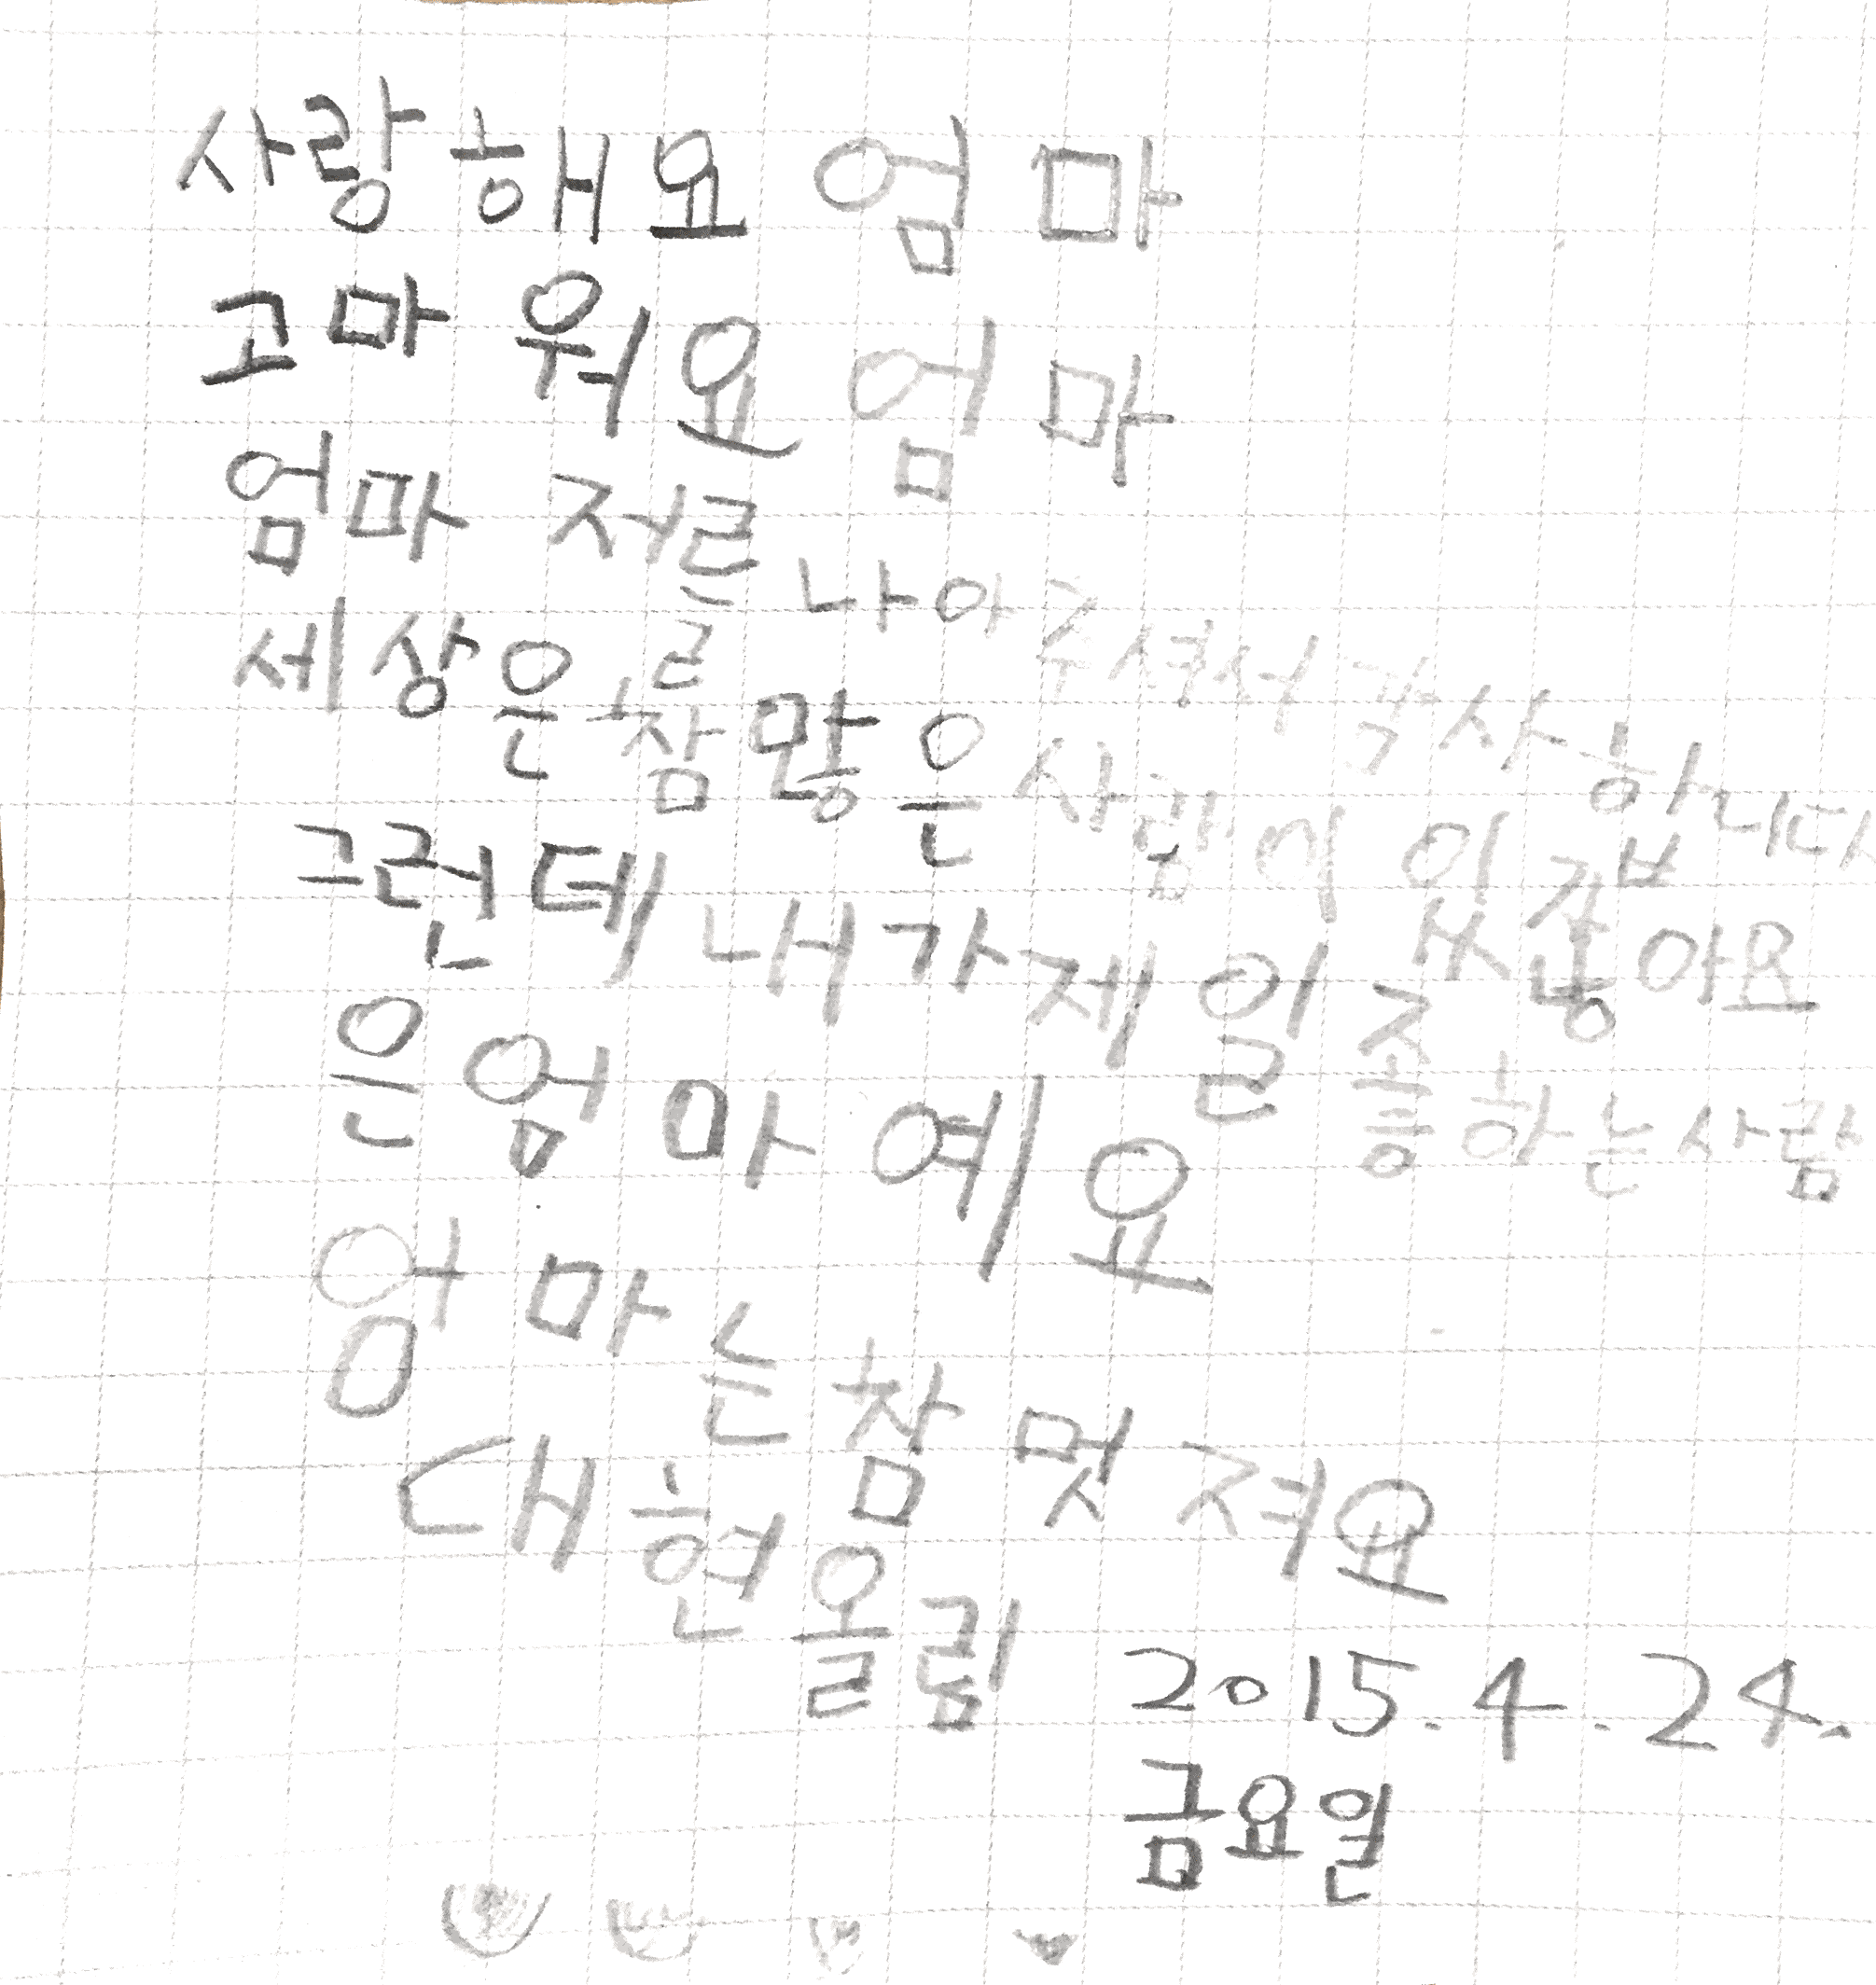 사랑해요 엄마
고마워요 엄마
엄마 저를 나아 주셔서 감사합니다
세상은 참 많은 사람이 있 같아요
그런데 내가 제일 하는 사람
은 엄마예요
엉마는 참 멋져요
대현 올림
2015. 4. 24.
금요일